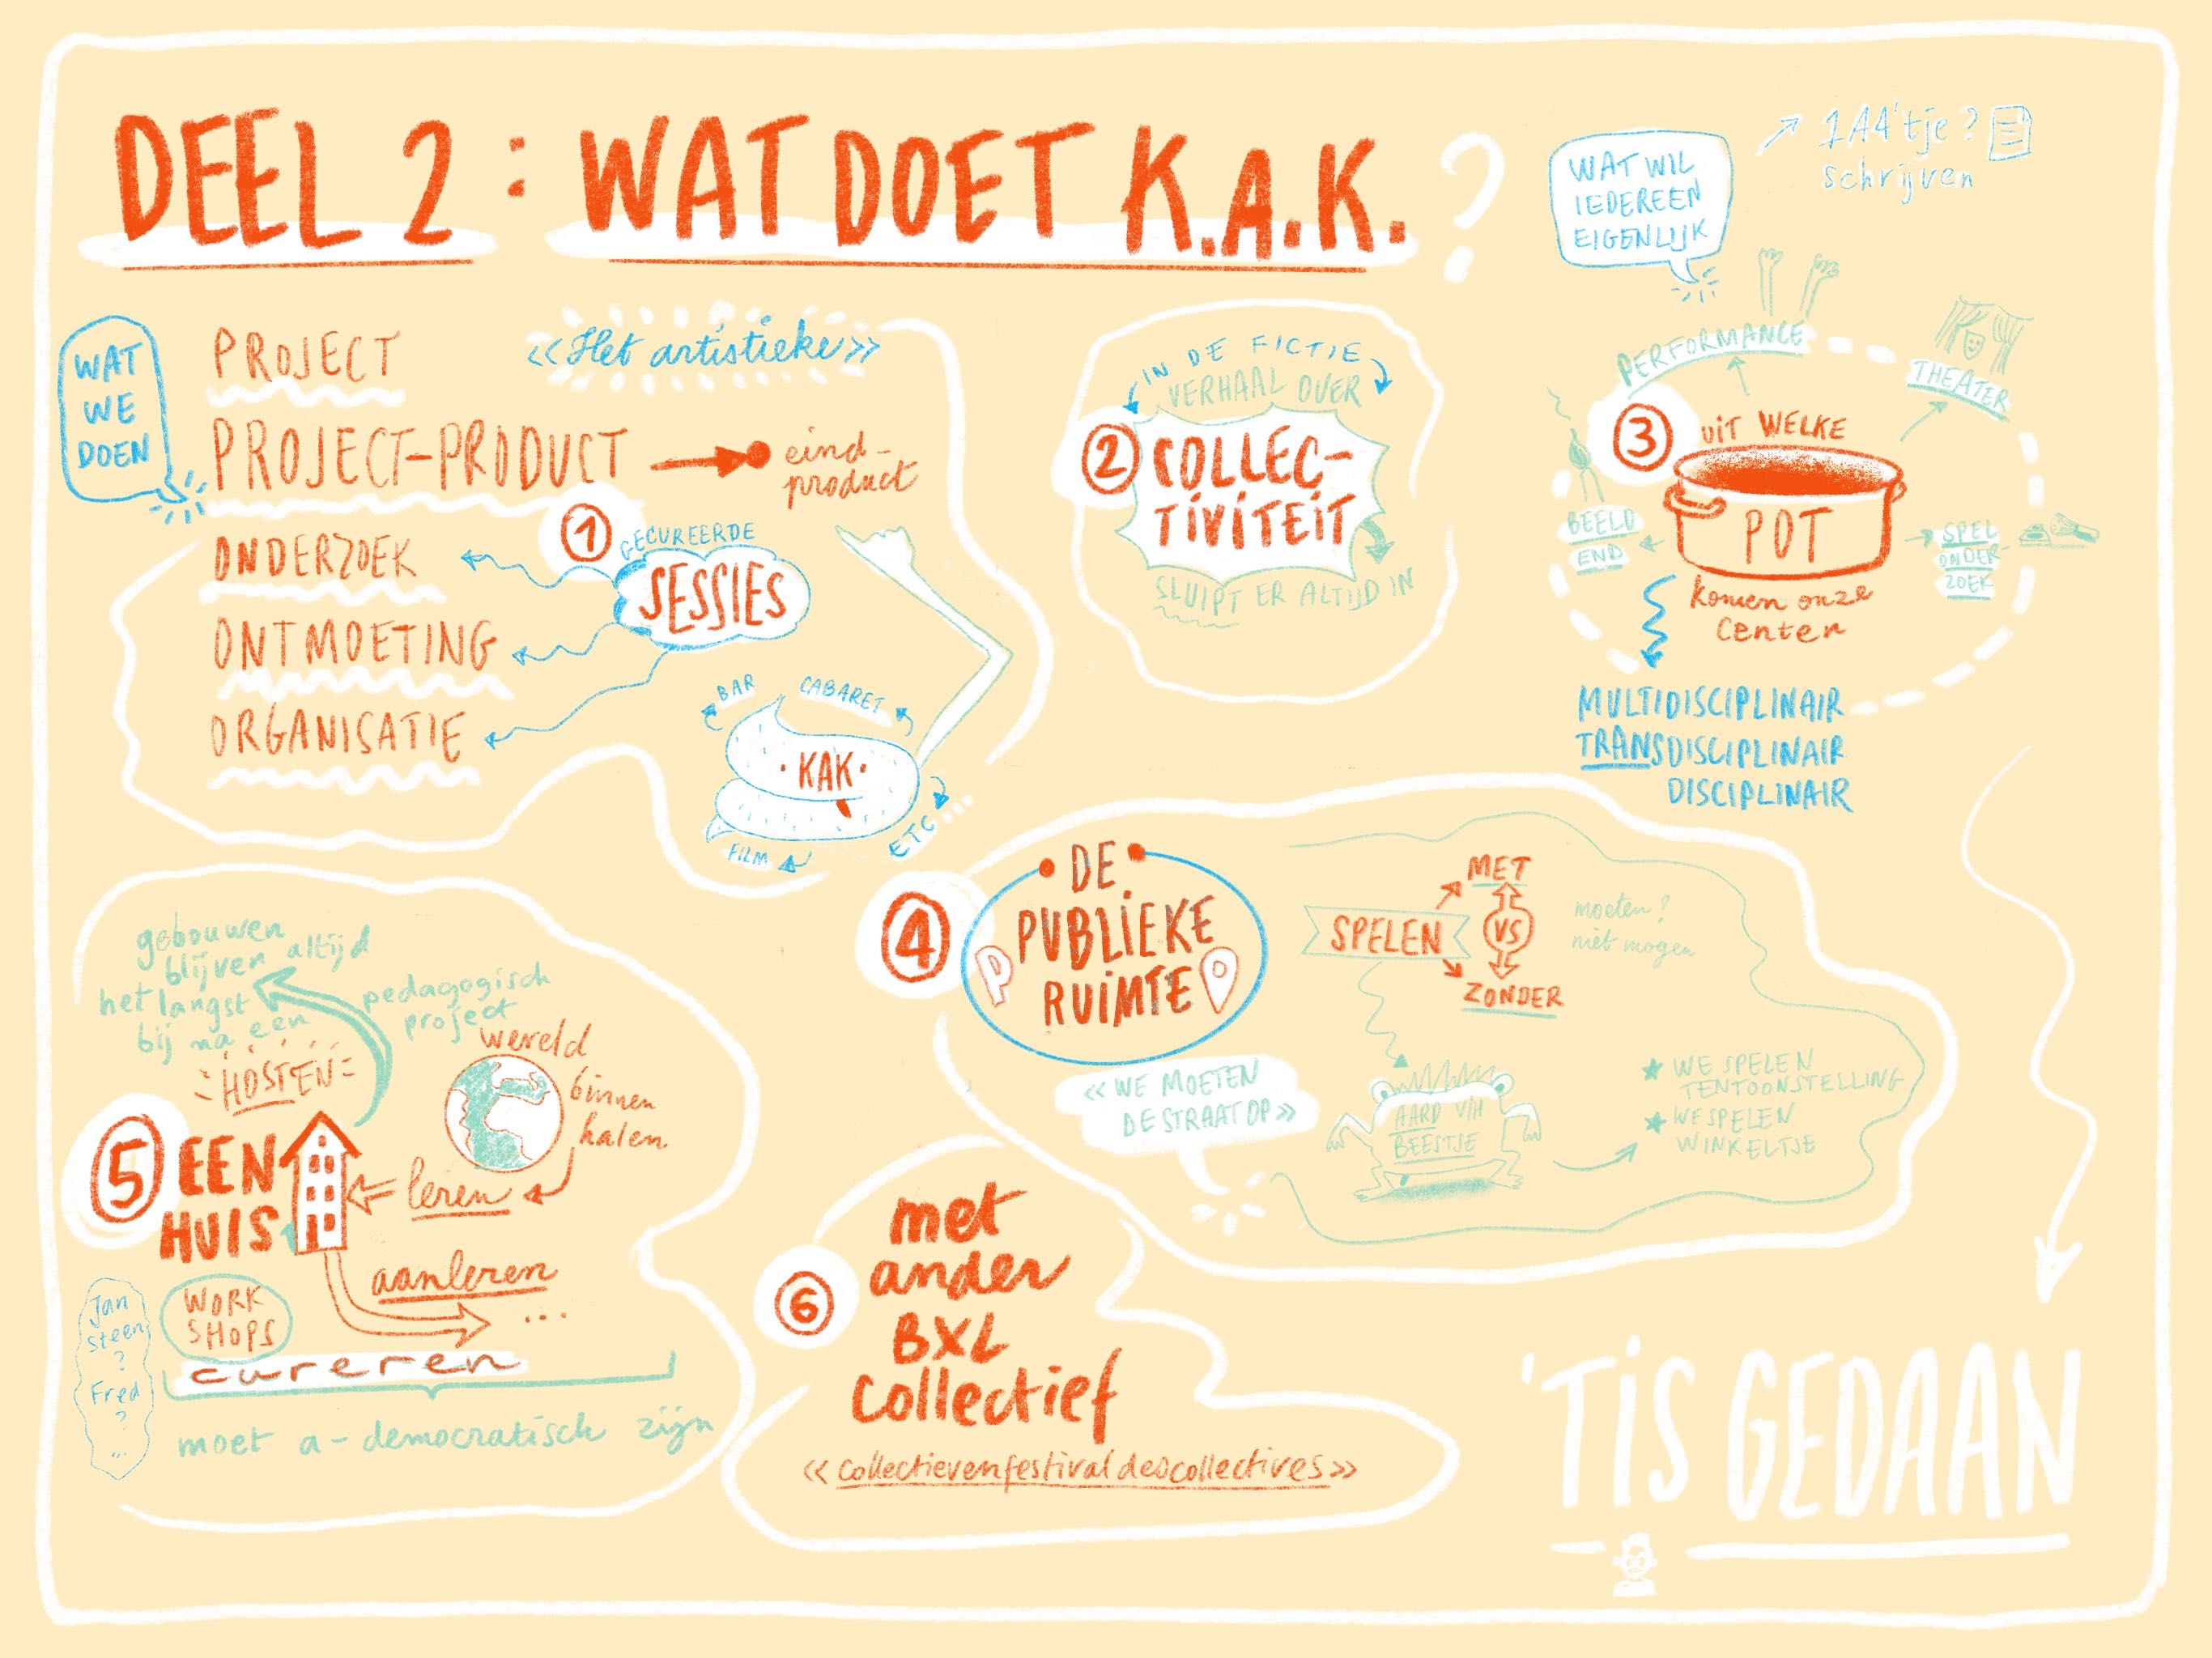 DEEL 2 : WAT DOET K.A.K. ?
WAT WIL
IEDEREEN
EIGENLIJK
1A4'tje ?
schrijven
WAT
WE
DOEN
PROJECT
PROJECT-PRODUCT
eind-
product
ONDERZOEK
ONTMOETING
ORGANISATIE
<<Het artistieke>>
1
GECUREERDE
SESSIES
BAR
CABARET
·KAK·
FILM
ETC...
2
IN DE FICTIE
VERHAAL OVER
COLLEC-
TIVITEIT
SLUIPT ER ALTIJD IN
3
UIT WELKE
POT
komen onze
centen
PERFORMANCE
THEATER
BEELD
END
SPEL
ONDER-
ZOEK
MULTIDISCIPLINAIR
TRANSDISCIPLINAIR
DISCIPLINAIR
4
DE
PUBLIEKE
RUIMTE
P
SPELEN
MET
VS
ZONDER
moeten?
niet mogen
<<WE MOETEN
DE STRAAT OP>>
AARD V/H
BEESTJE
WE SPELEN
TENTOONSTELLING
WE SPELEN
WINKELTJE
5
EEN
HUIS
gebouwen
blijven altijd
het langst
bij na een
pedagogisch
project
HOSTEN
wereld
binnen
halen
leren
aanleren
...
WORK
SHOPS
cureren
moet a-democratisch zijn
Jan
steen
?
Fred
?
...
6
met
ander
BXL
collectief
<<collectievenfestivaldescollectives>>
'TIS GEDAAN